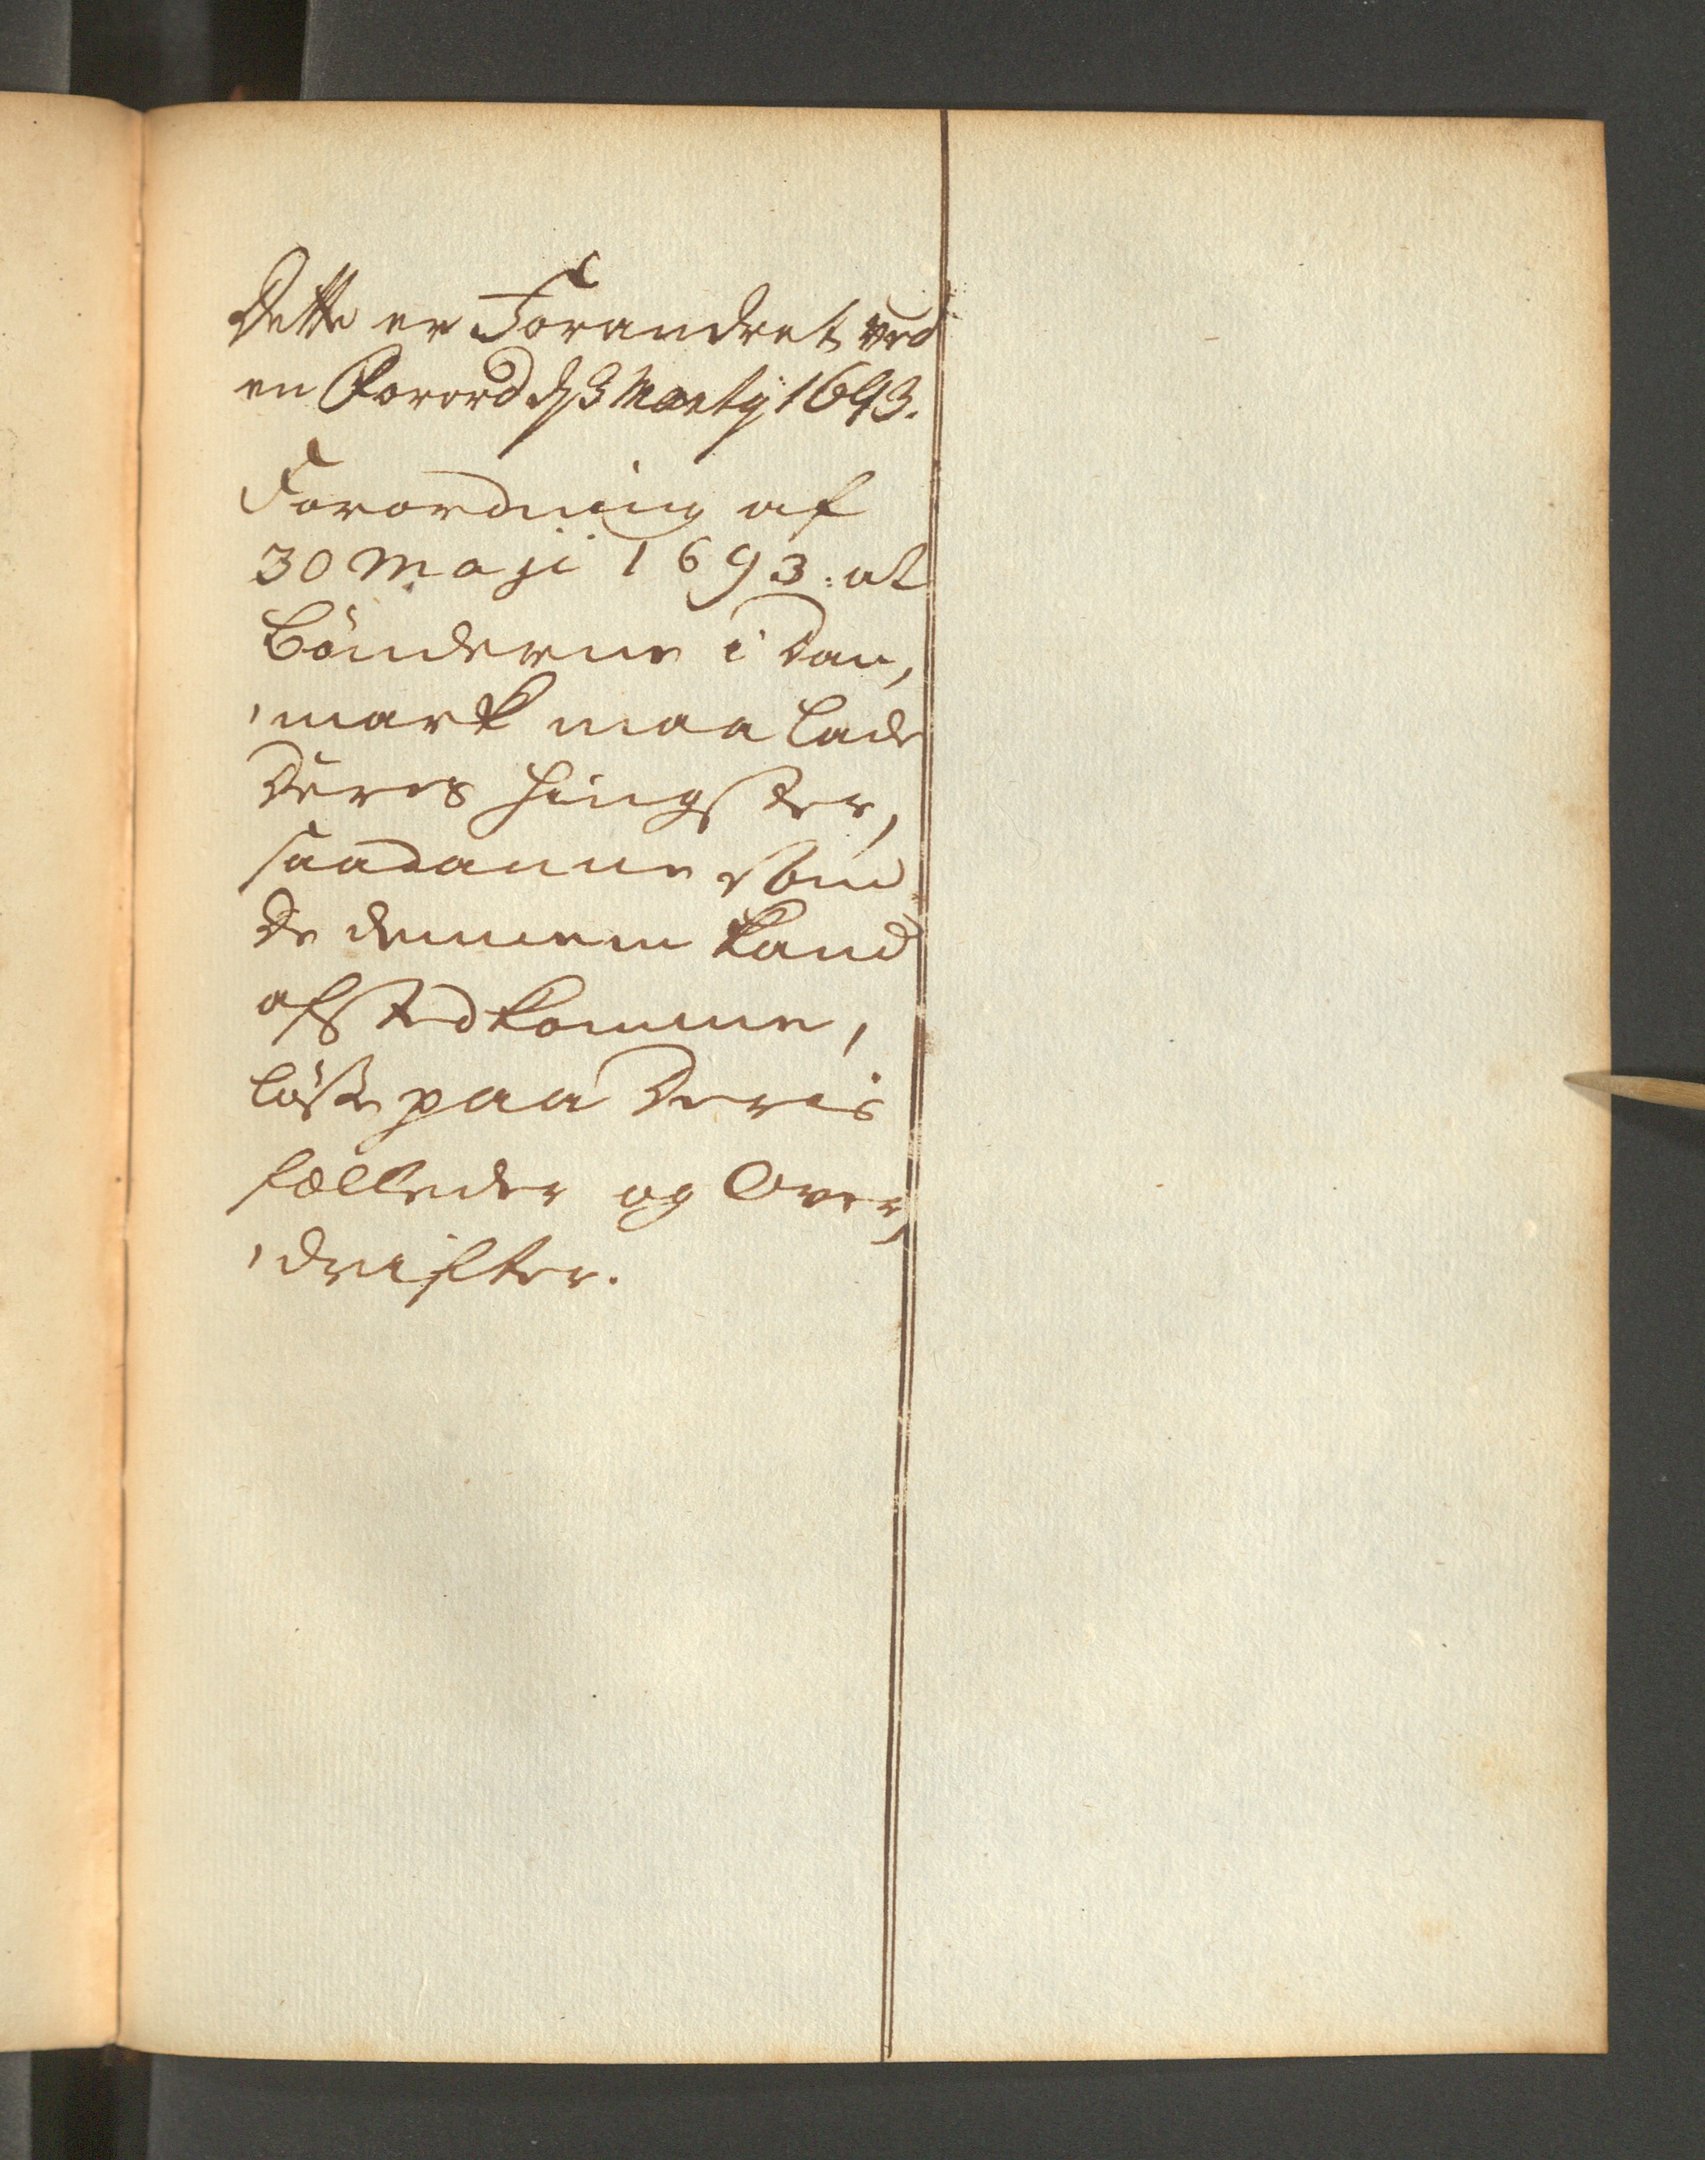 Dette er Forandret ved
en Forord d/ 3 Martij 1693.
Forordning af
30 Maji 1693: at
Bönderne i Dan,
,mark maa lade
Deres Hingster,
saadanne som
De dennem kand
afsted komme,
löße paa Deris
fælleder og Over,
,drifter.